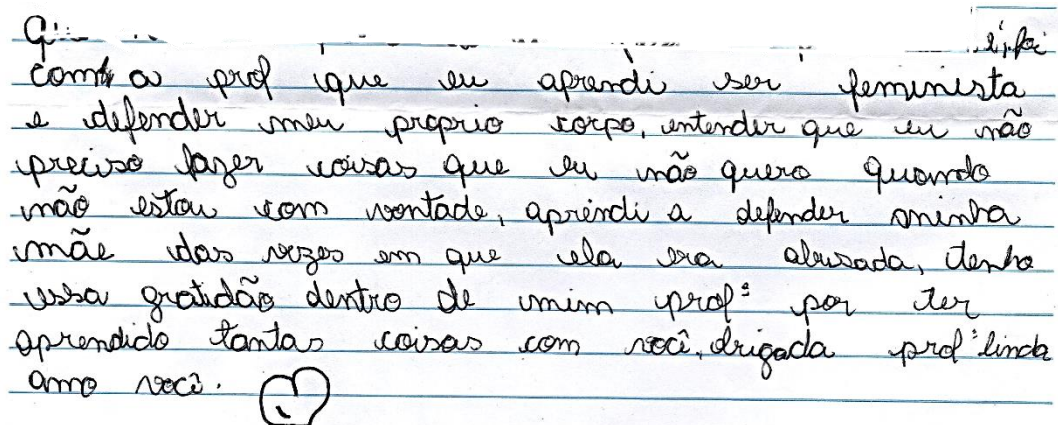 foi
com a prof que eu aprendi ser feminista
e defender meu proprio corpo, entender que eu não
preciso fazer coisas que eu não quero quando
não estou com vontade, aprendi a defender minha
mãe das vezes em que ela era abusada, tenho
essa gratidão dentro de mim profª por ter
aprendido tantas coisas com você, obrigada profª linda
amo você.